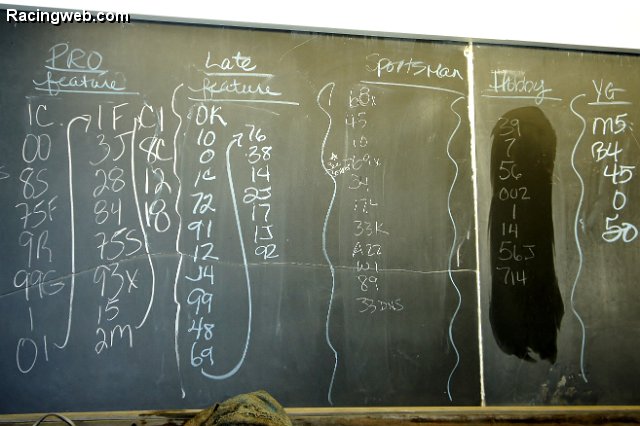 Racingweb.com
PRO
feature
1C
00
8S
75F
9R
99G
1
01
1F
3J
28
84
75S
93x
15
2m
C1
8C
12
18
Late
feature
OK
10
0
1C
72
91
12
J4
99
48
69
76
38
14
2J
17
1J
92
Sportsman
45
10
69x
34
33K
A22
W1
89
33 DNS
Hobby
39
7
56
002
1
14
56J
714
YG
M5
B4
45
0
50